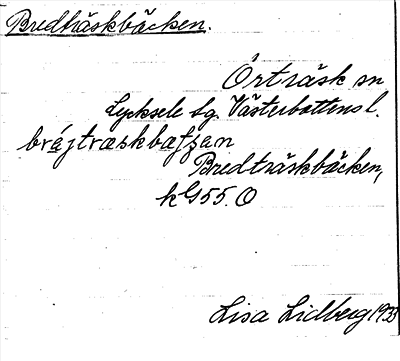 Bredträskbäcken.
Örträsk sn
Lycksele lg. Västerbottens l.
Bredträskbäcken,
Lisa Lidberg 1933